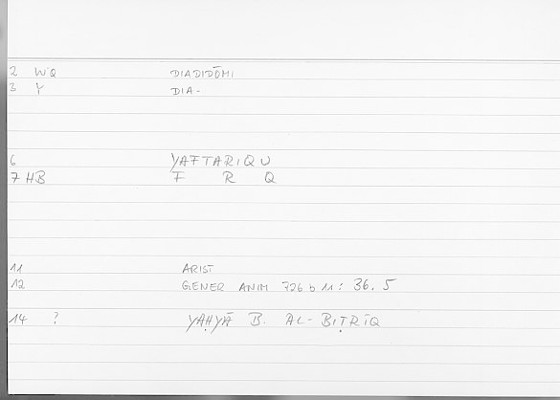 2 WQ DIADIDŌMI
3 Y DIA-
6 YAFTARIQU
7 HB F R Q
11 ARIST
12 GENER ANIM 726 b 11: 36.5
14 ? YAḤYĀ B. AL-BIṬRĪQ